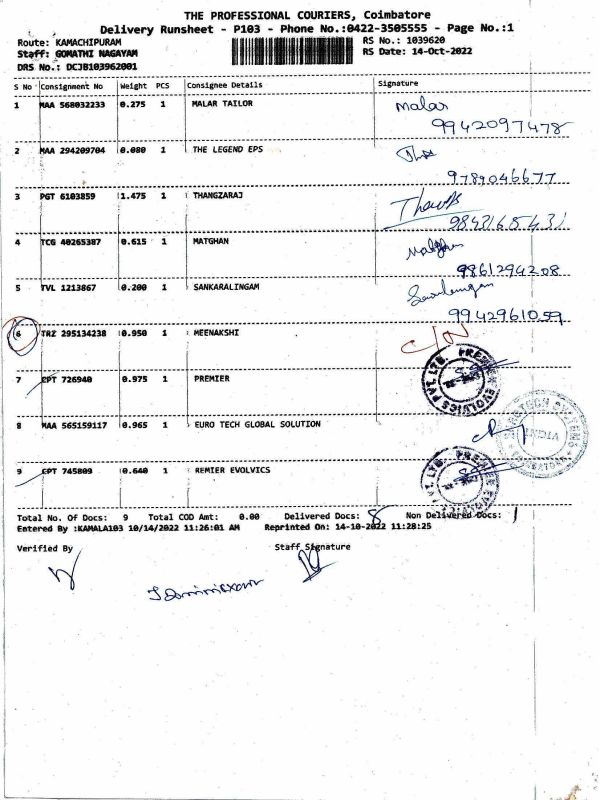 THE PROFESSIONAL COURIERS, Coimbatore
Delivery Runsheet - P103 - Phone No.:0422-3505555 - Page No.:1
Route: KAMACHIPURAM RS No.: 1039620
Staff: GOMATHI NAGAYAM RS Date: 14-Oct-2022
DRS No.: DCJB103962001
S No Consignment No Weight PCS Consignee Details Signature
1 MAA 568032233 0.275 1 MALAR TAILOR Malar
9942097478
2 MAA 294209704 0.080 1 THE LEGEND EPS
9789046677
3 PGT 6103859 1.475 1 THANGZARAJ
9843165431
4 TCG 40265387 0.615 1 MATGHAN Matghan
9861294208
5 TVL 1213867 0.200 1 SANKARALINGAM
9942961059
6 TRZ 295134238 0.950 1 MEENAKSHI
7 CPT 726940 0.975 1 PREMIER PREMIER EVOLVICS PVT. LTD.
8 MAA 565159117 0.965 1 EURO TECH GLOBAL SOLUTION
9 CPT 745809 0.640 1 REMIER EVOLVICS PREMIER EVOLVICS PVT. LTD.
Total No. Of Docs: 9 Total COD Amt: 0.00 Delivered Docs: 8 Non Delivered Docs: 1
Entered By :KAMALA103 10/14/2022 11:26:01 AM Reprinted On: 14-10-2022 11:28:25
Verified By Staff Signature